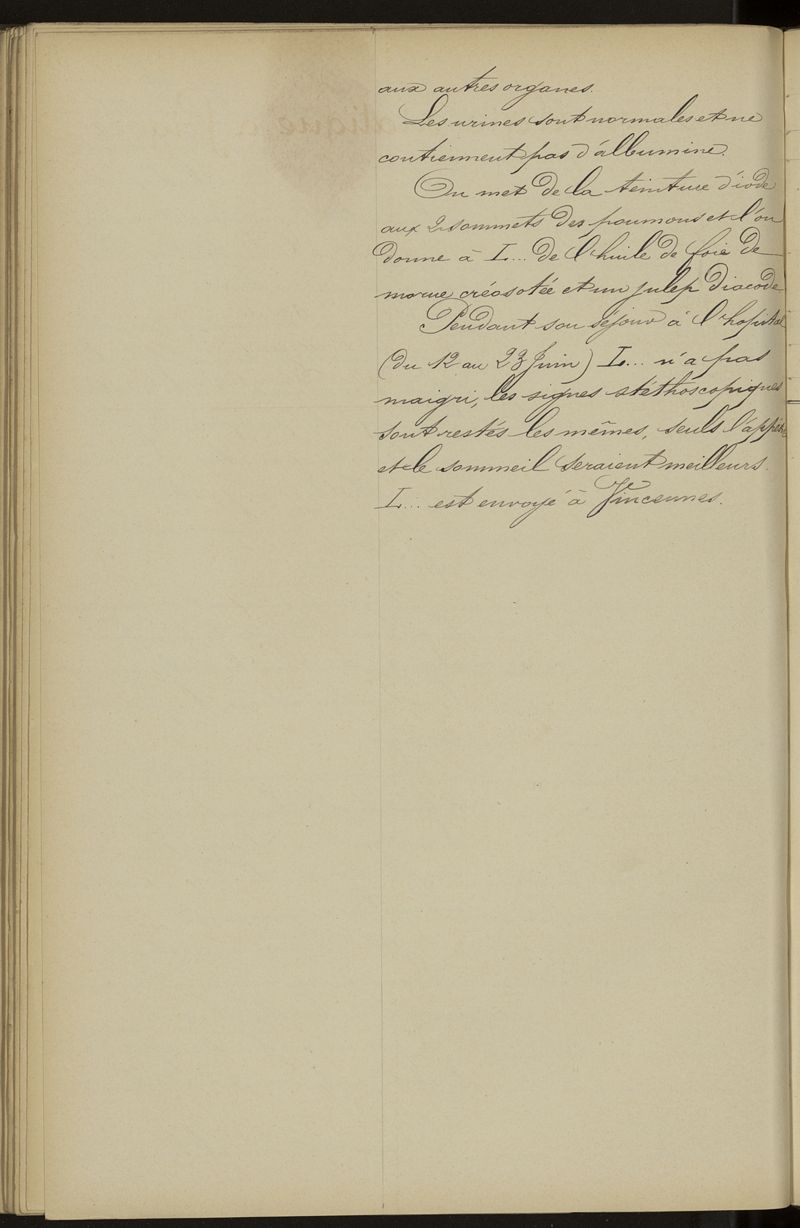 aux autres organes.
Les urines sont normales et ne
contiennent pas d'albumine.
On met de la teinture d'iode
aux 2 sommets des poumons et l'on
donne à L... de l'huile de foie de
morue créosotée et un julep diacode
Pendant son séjour à l'hopital
(du 12 au 23 Juin) L... n'a pas
maigri, les signes stéthoscopiques
sont restés les mêmes, seuls l'appétit
et le sommeil seraient meilleurs.
L... est envoyé à Vincennes.